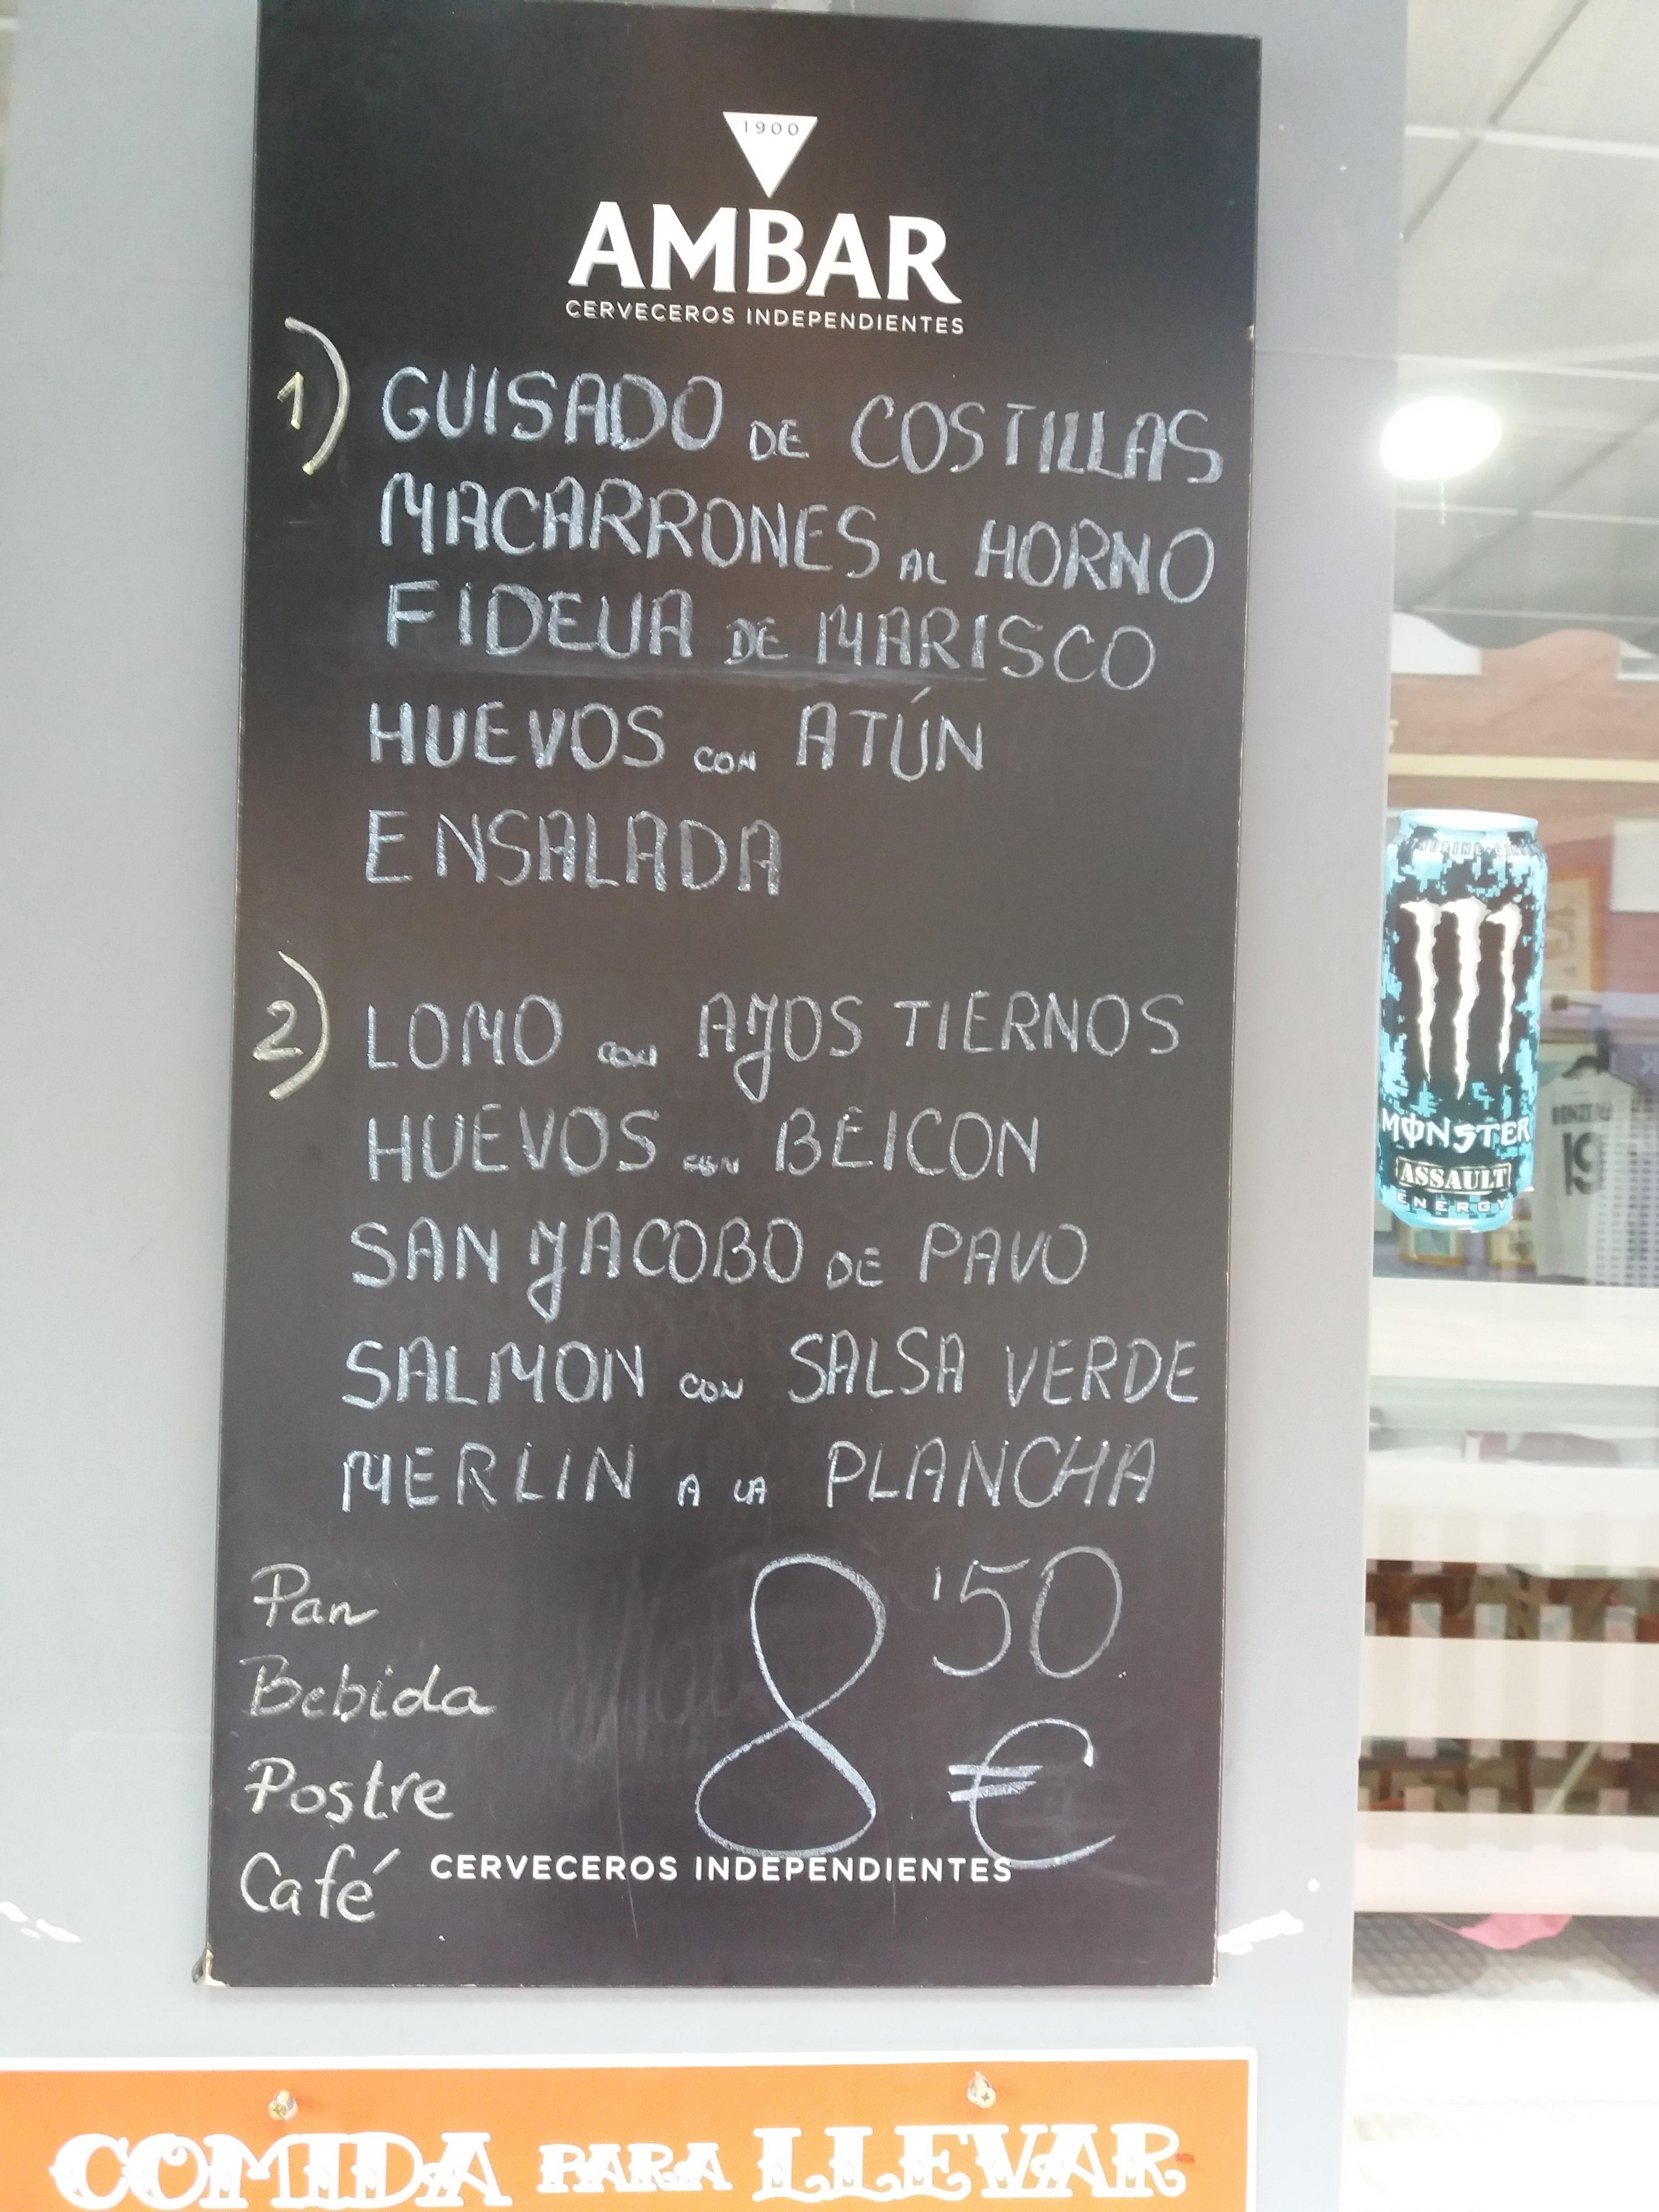 1900
AMBAR
CERVECEROS INDEPENDIENTES
1) GUISADO DE COSTILLAS
MACARRONES AL HORNO
FIDEUA DE MARISCO
HUEVOS CON ATÚN
ENSALADA
2) LOMO CON AJOS TIERNOS
HUEVOS CON BEICON
SAN JACOBO DE PAVO
SALMON CON SALSA VERDE
MERLIN A LA PLANCHA
Pan
Bebida
Postre
Café
8'50
€
CERVECEROS INDEPENDIENTES
COMIDA PARA LLEVAR
MONSTER
ASSAULT
ENERGY
19